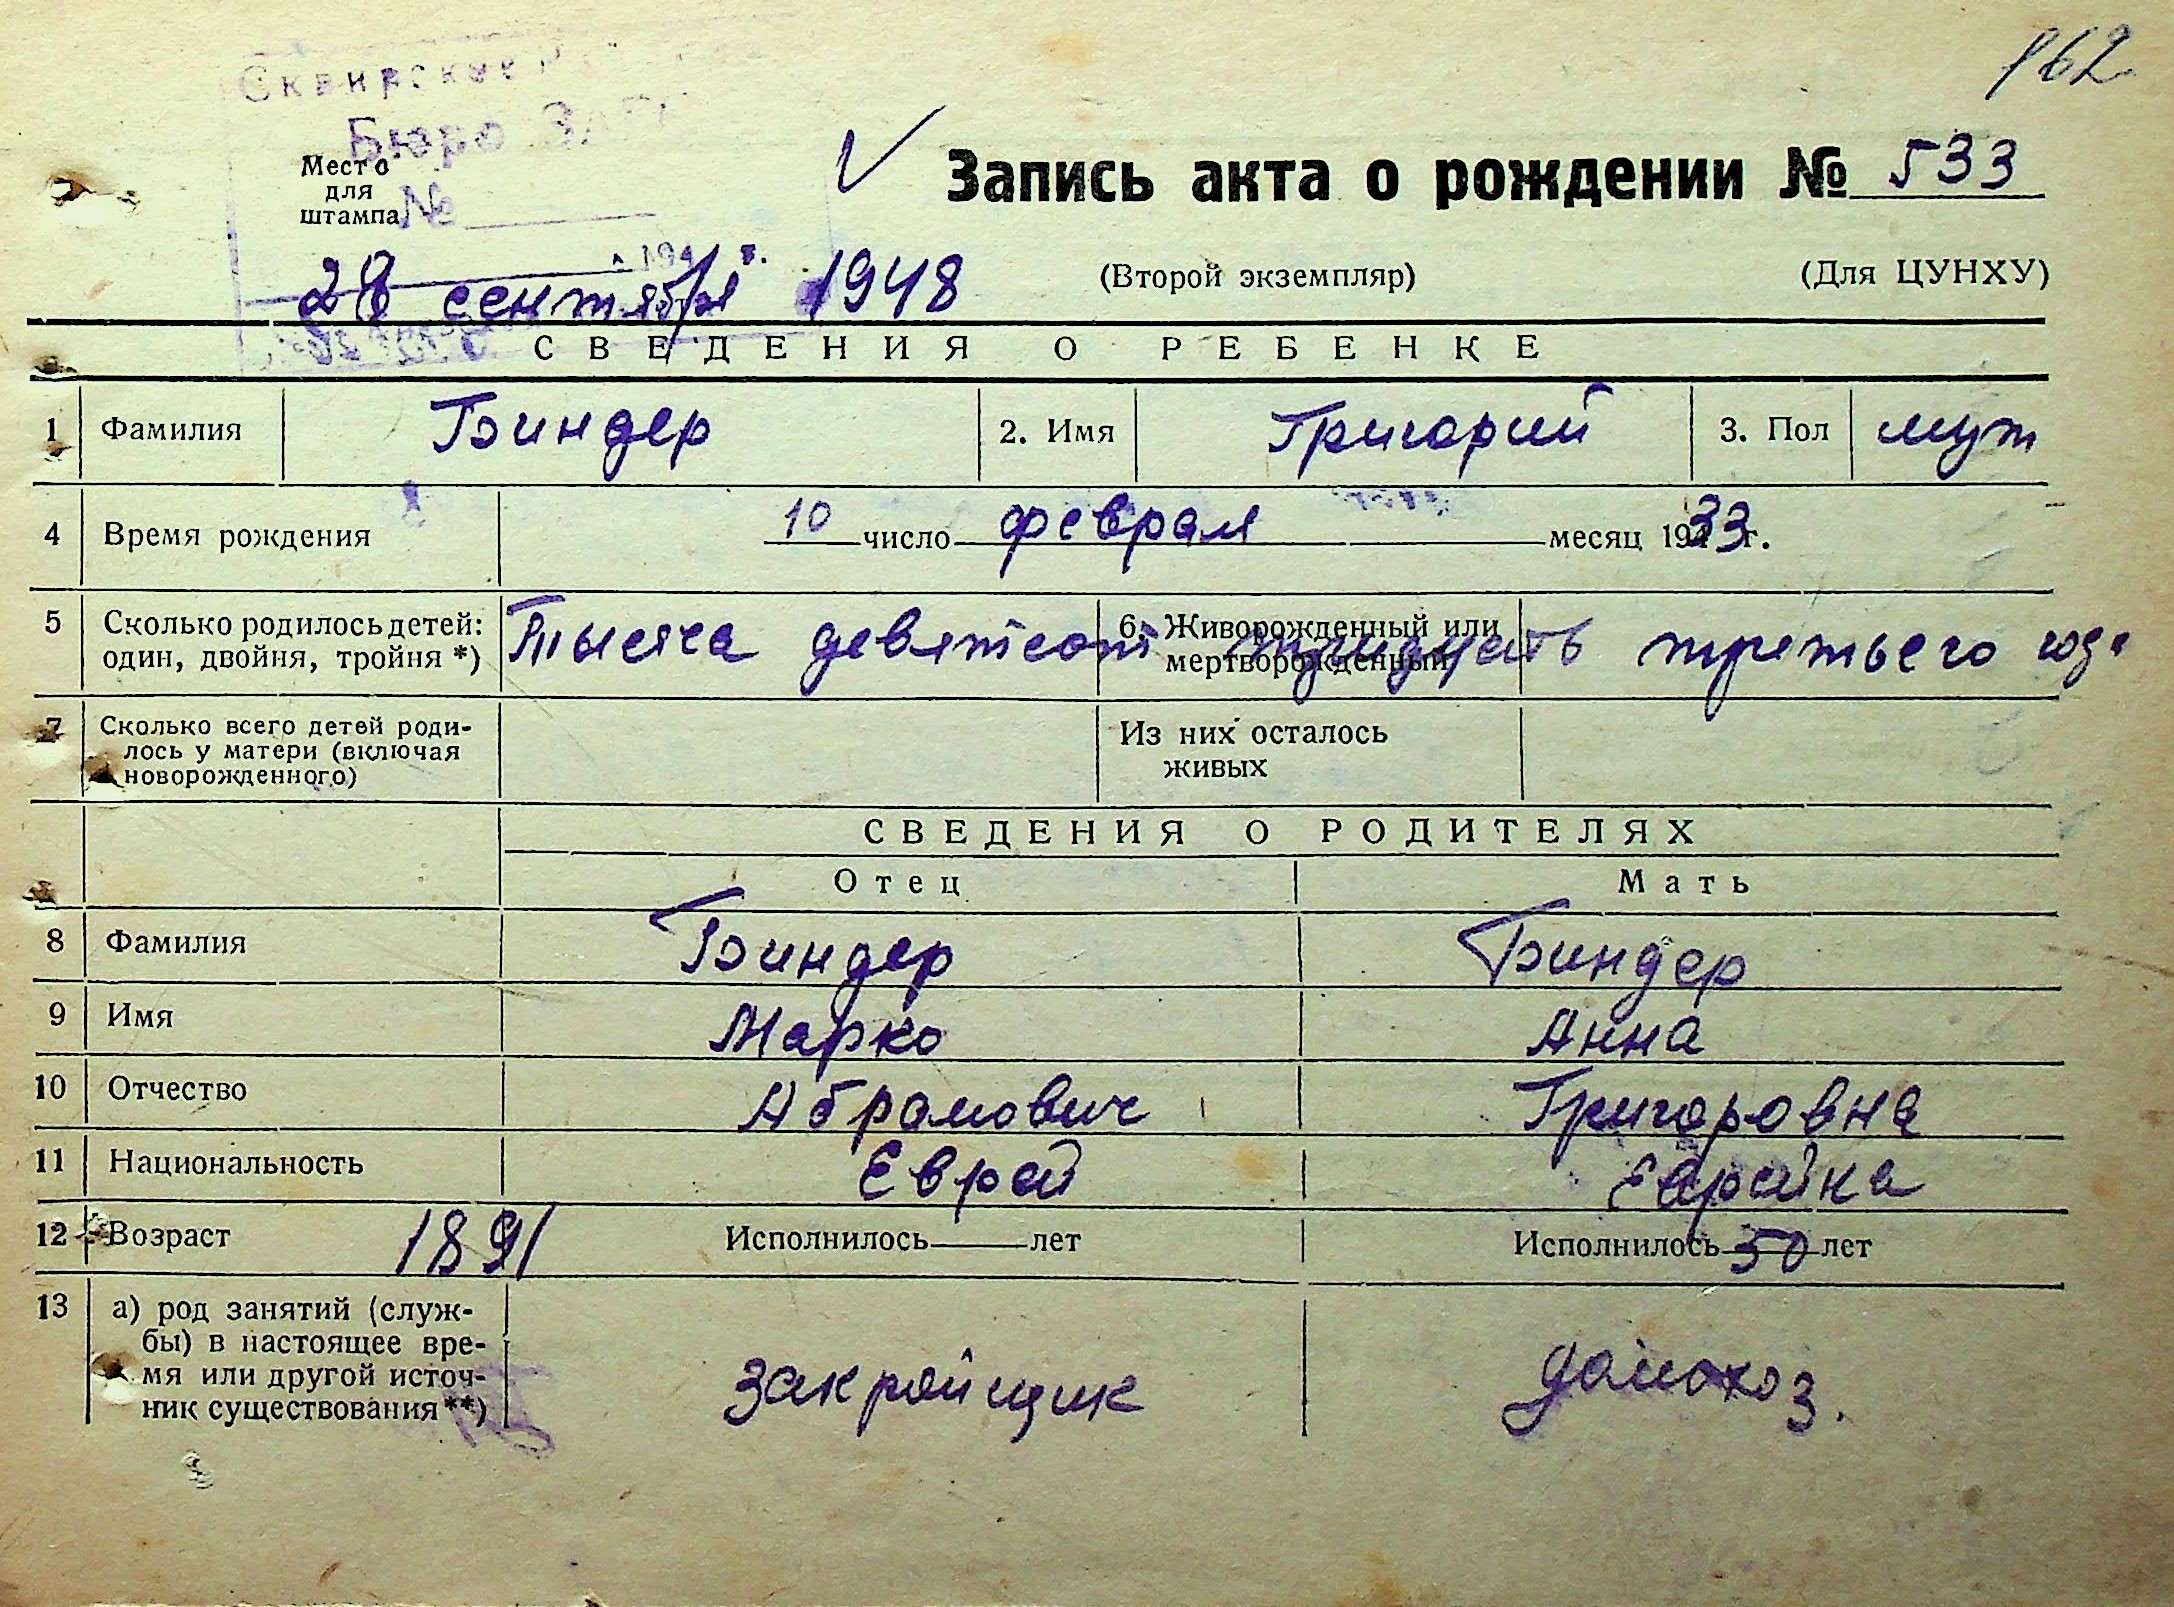 162
Сквирское
Бюро ЗАГС
Место
для
штампа
№
194 г.
Запись акта о рождении № 533
28 сентября 1948
(Второй экземпляр) (Для ЦУНХУ)
СВЕДЕНИЯ О РЕБЕНКЕ
1 Фамилия Биндер 2. Имя Григорий 3. Пол муж
4 Время рождения 10 число феврал месяц 1933 г.
5 Сколько родилось детей: один, двойня, тройня *) 6. Живорожденный или мертворожденный
Тысяча девятсот тридцать третьего года
7 Сколько всего детей роди-
лось у матери (включая
новорожденного)
Из них осталось
живых
СВЕДЕНИЯ О РОДИТЕЛЯХ
Отец Мать
8 Фамилия Биндер Биндер
9 Имя Марко Анна
10 Отчество Абрамович Григоровна
11 Национальность Еврей Еврейка
12 Возраст 1891 Исполнилось лет Исполнилось 50 лет
13 а) род занятий (служ-
бы) в настоящее вре-
мя или другой источ-
ник существования **)
закройщик домохоз.